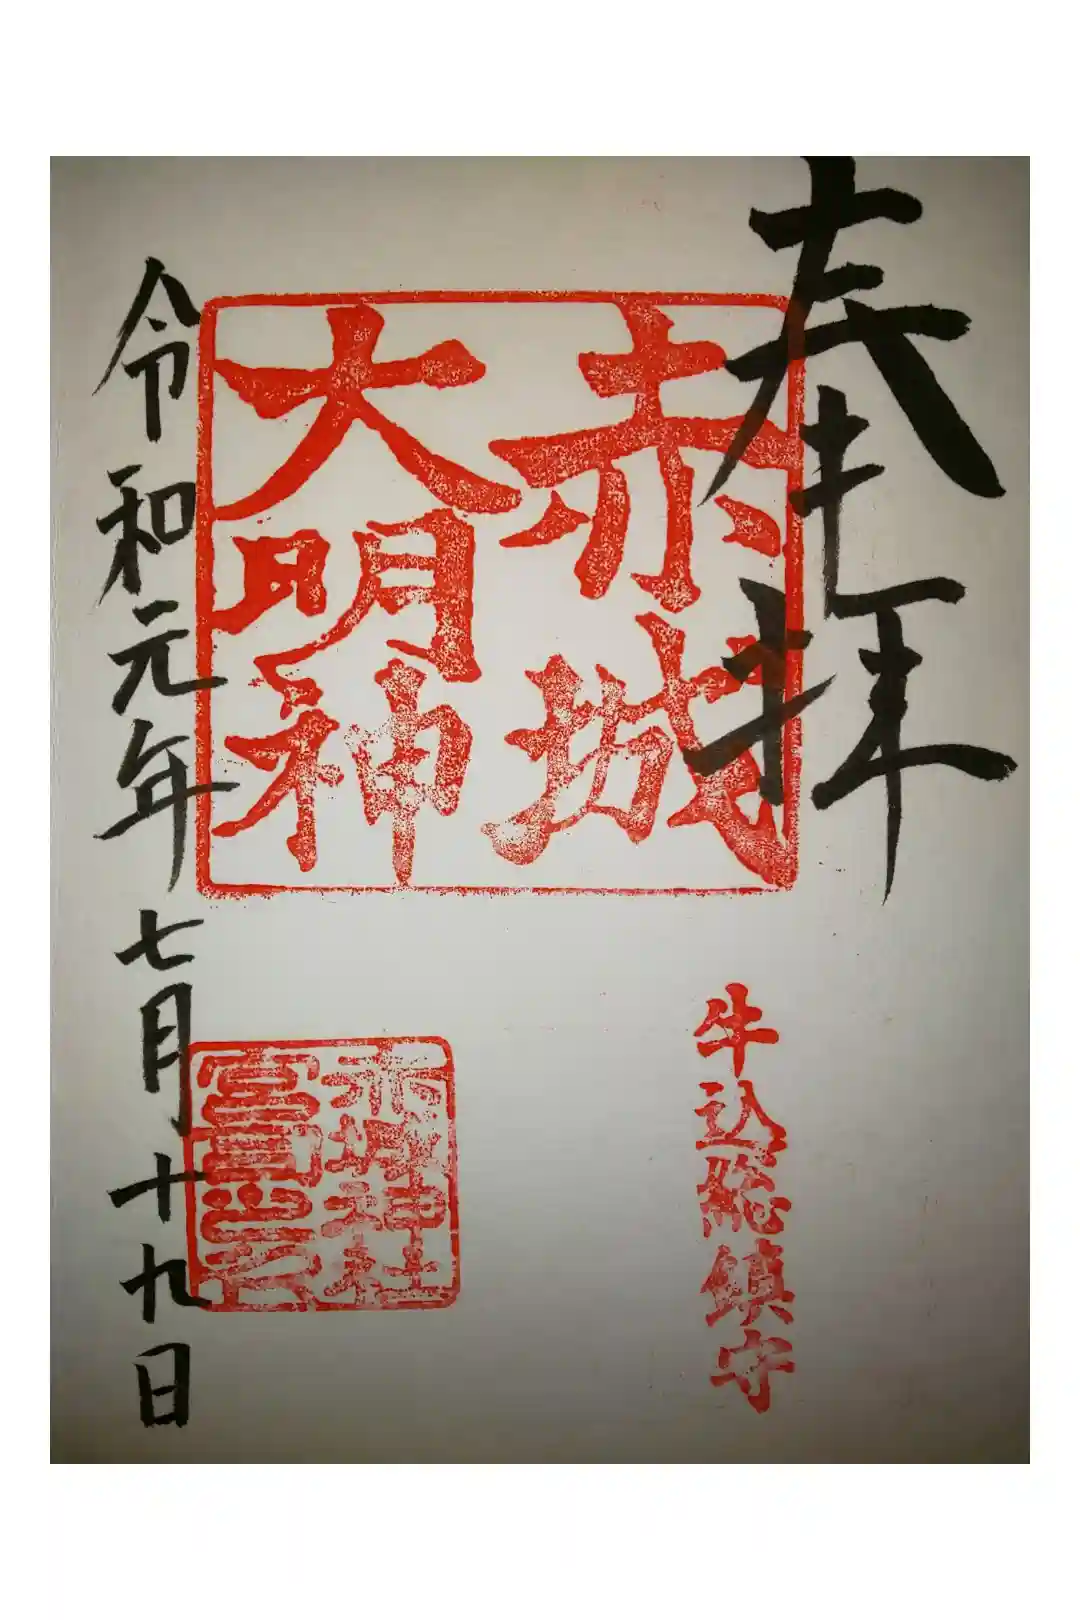 奉拝
赤城
大明神
牛込総鎮守
赤城神社
宮司之印
令和元年七月十九日